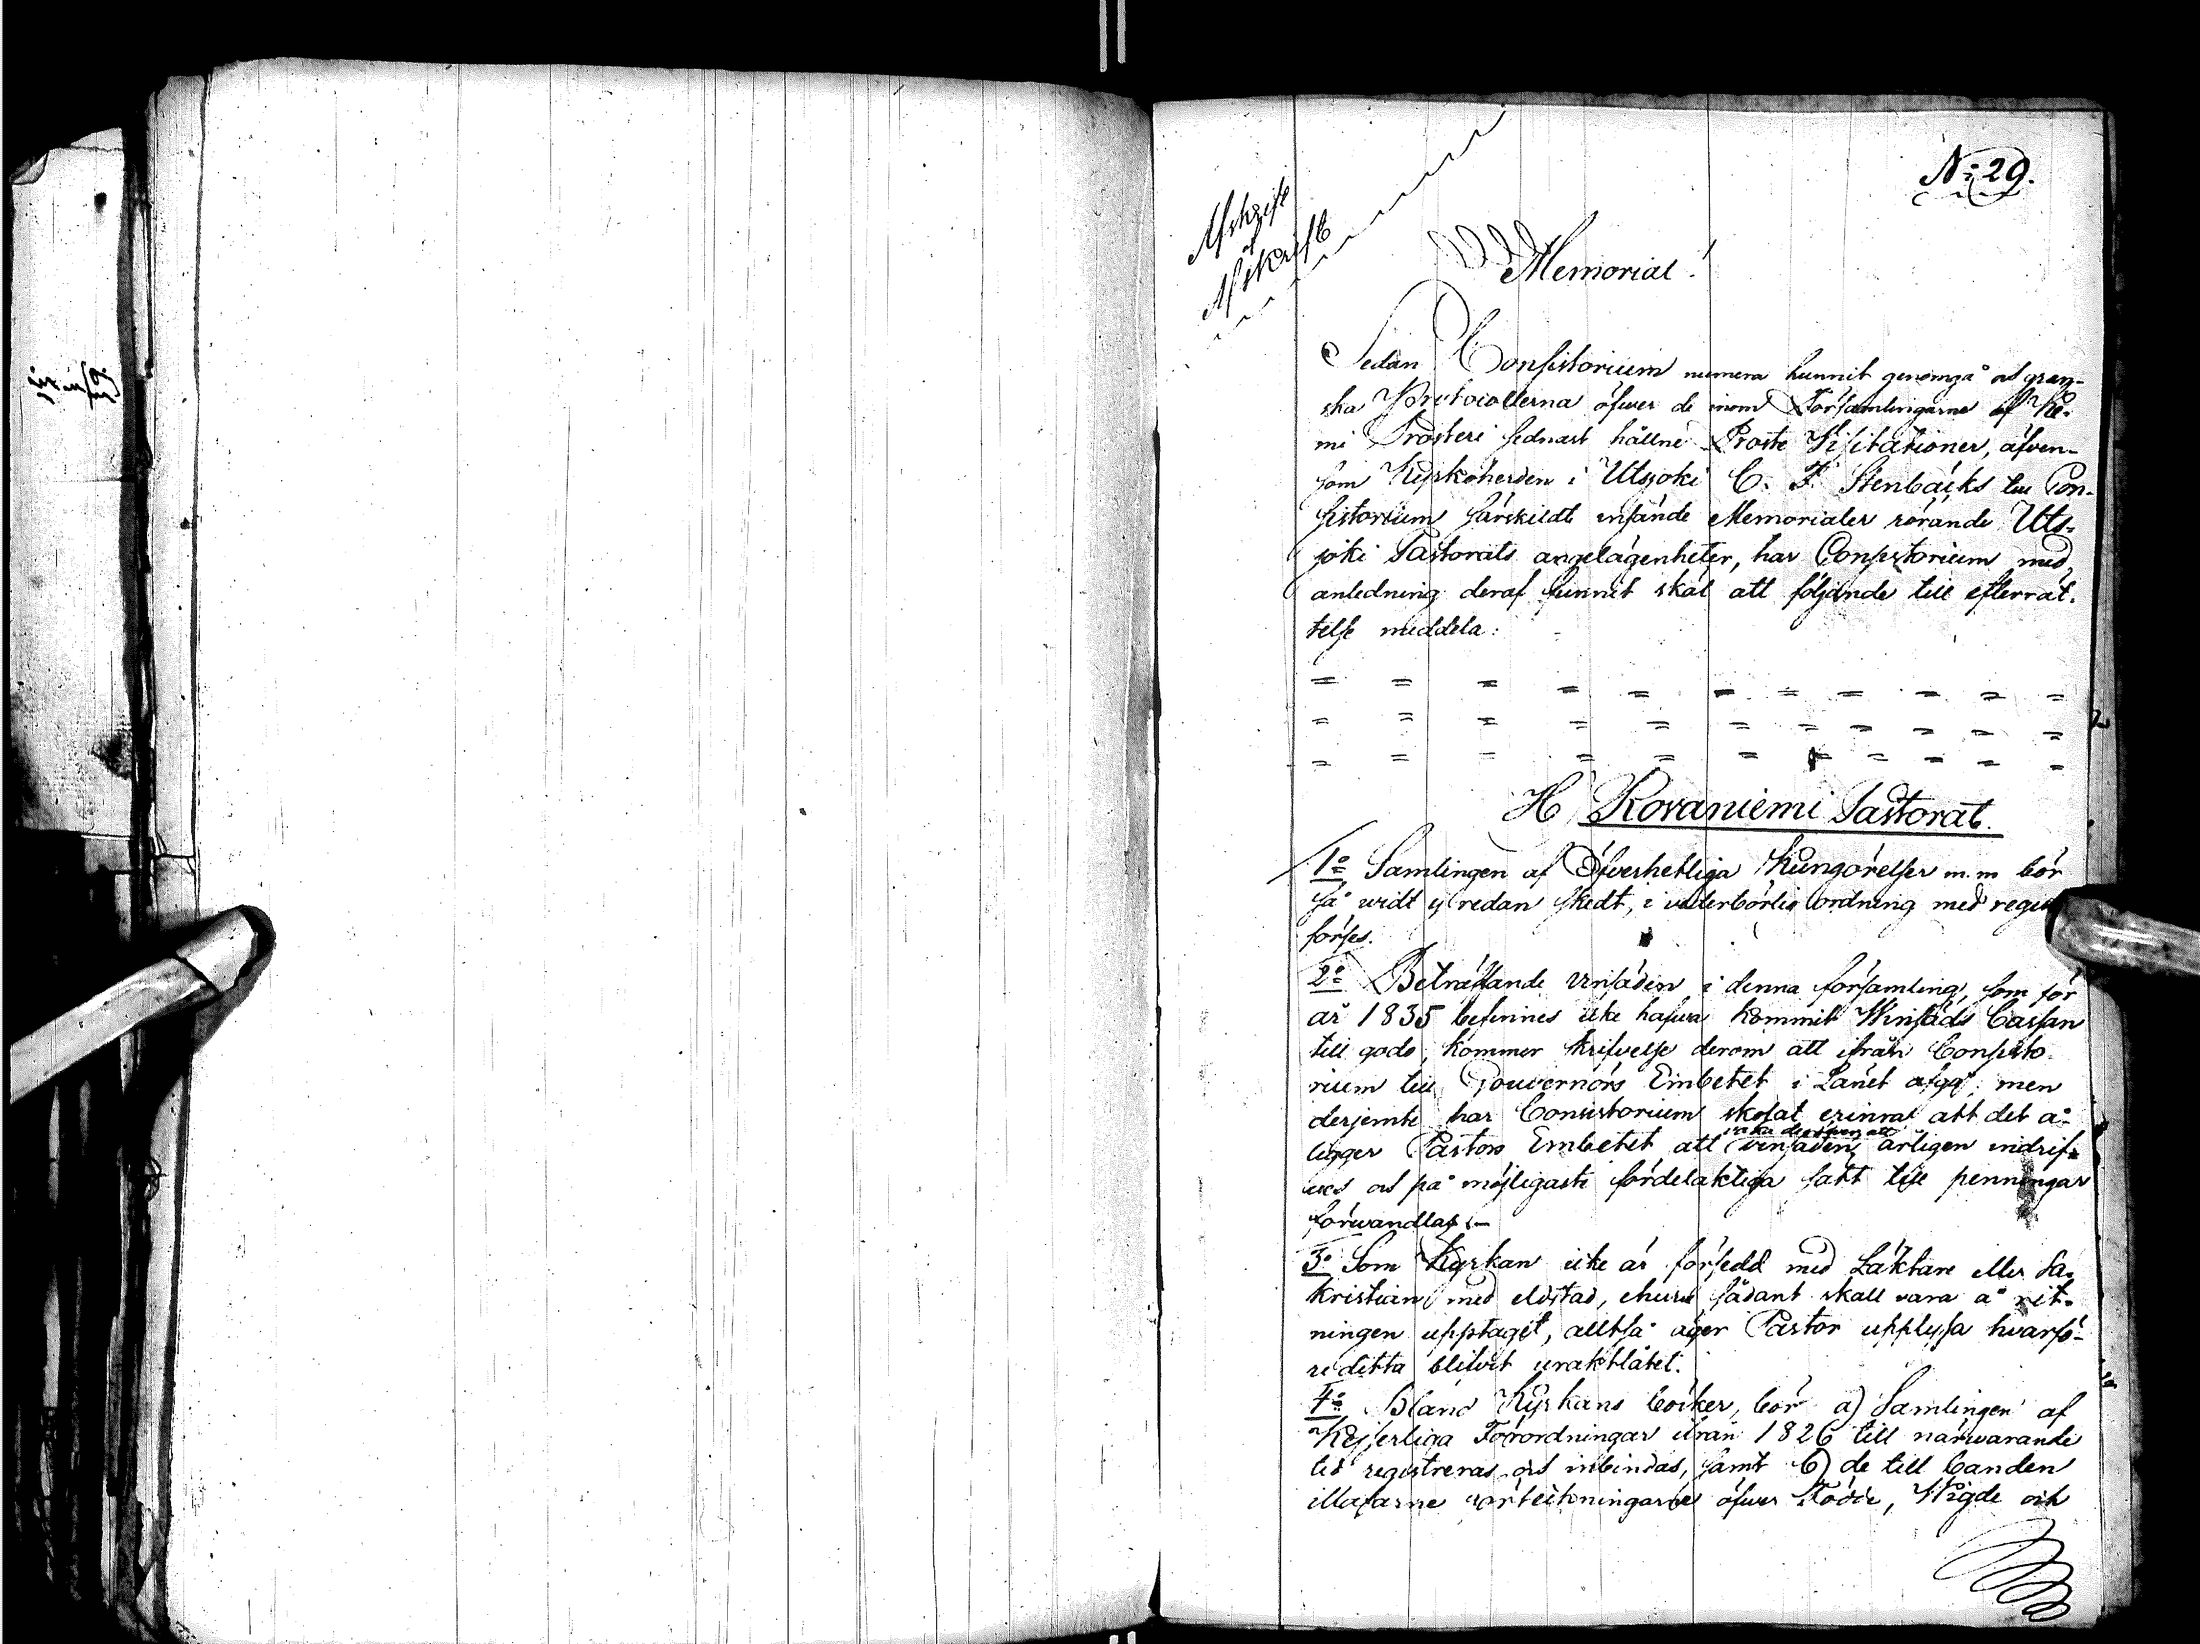 No 29.
Afskrift
af
Afskrift
Memorial!
Sedan Consistorium numera hunnit genomgå och gran-
ska Protocollerna öfwer de inom Församlingarne af Ke-
mi Prosteri sednast hållne Proste Visitationer, äfven-
som Kyrkoherden i Utsjoki C. F. Stenbäcks till Con-
sistorium särskildt insände Memorialer rörande Uts-
joki Pastorats angelägenheter, har Consistorium med
anledning deraf funnit skäl att följande till efterrät-
telse meddela:
= = = = = = = = = = =
= = = = = = = = = = =
= = = = = = = = = = =
H Rovaniemi Pastorat.
1o Samlingen af Öfwerhetliga Kungörelser m.m bör
så widt ej redan skedt, i wederbörlig ordning med
förses.
2o Beträffande vinsäden i denna församling, som för
år 1835 befinnes icke hafwa kommit Winsäds Cassan
till godo, kommer skrifvelse derom att ifrån Consisto-
rium till Gouvernörs Embetet i Länet afgå; men
derjemte har Consistorium skolat erinra att det å-
ligger Pastors Embetet att vinsäden årligen indrif-
wes och på möjligaste fördelaktiga sätt till penningar
förwandlas.—
3o Som Kyrkan icke är försedd med Läktare eller Sa-
kristian med eldstad, ehuru sådant skall vara å rit-
ningen upptaget, alltså äger Pastor upplysa hvarfö-
re detta blifvit uraktlåtet.
4o Bland Kyrkans böcker, bör a) Samlingen af
Kejserliga Förordningar ifrån 1826 till närwarande
tid registreras och inbindas, samt b) de till banden
illafarne förteckningarne öfwer Födde, Wigde och